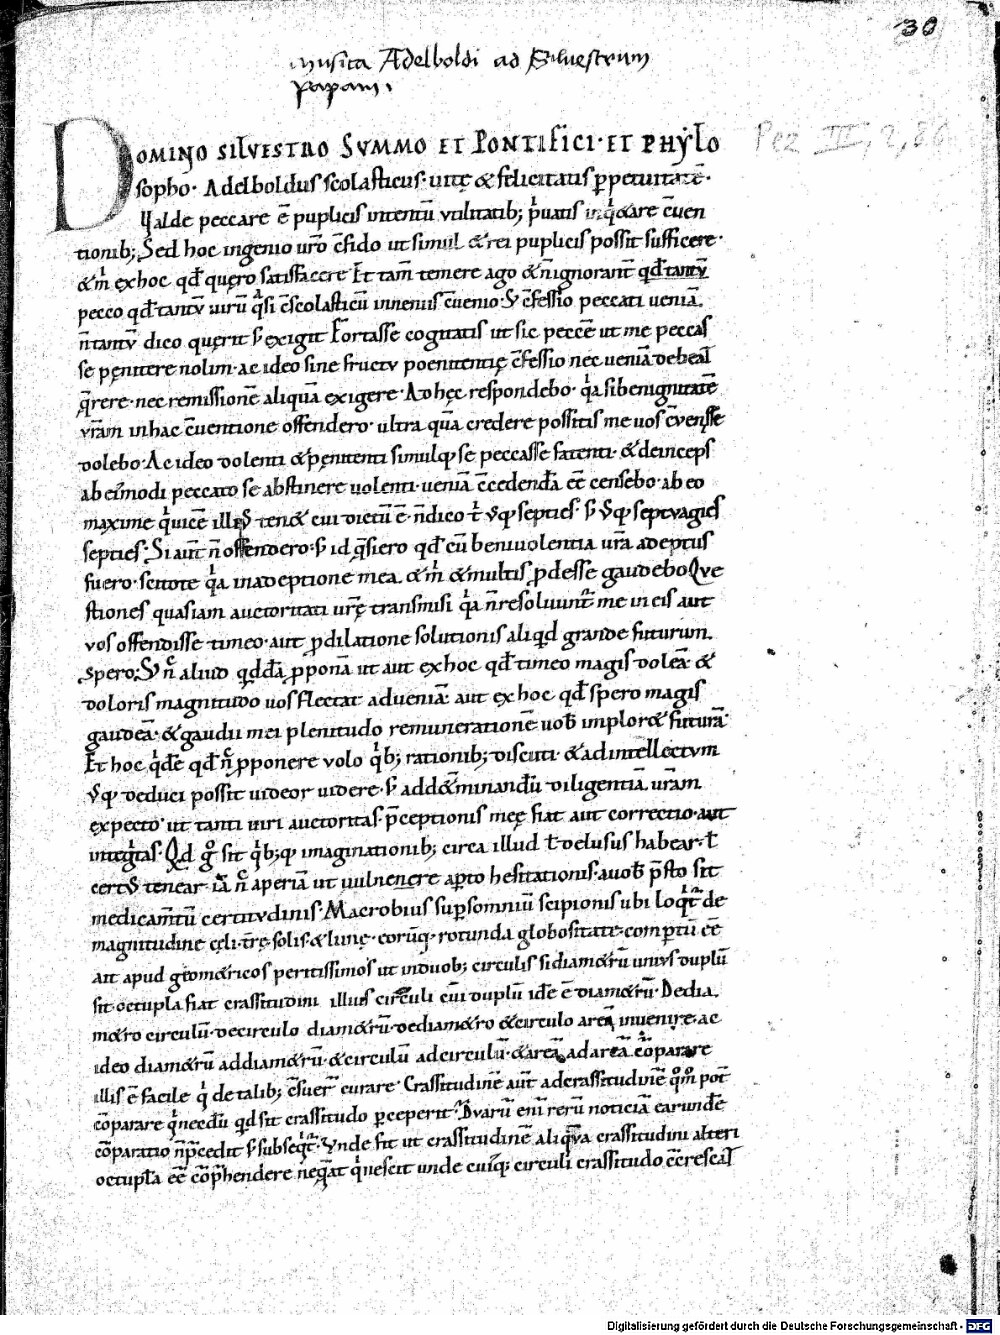 30
musica Adelboldi ad Siluestrum
papam.
Pez III, 2, 86
DOMINO SILVESTRO SVMMO ET PONTIFICI· ET PHYLO
sopho· Adelboldus scolasticus· uitę & felicitatis ꝑpetuitatē·
Valde peccare ē puplicis intentū utilitatib; pͥuatis inqͥetare cͫuen
tionib; Sed hoc ingenio uro c̄fido ut simul & rei puplicis possit sufficere·
& m̍ ex hoc qd̄ quero satisfacere Et tam̄ temere ago & n̄ ignorant̄ qd̄ tantū
pecco qd̄ tantū uirū qͣsi c̄scolasticū iuuenis c̄uenio· S; c̄fessio peccati ueniā.
n̄ tantū dico querit s; exigit Fortasse cogitatis ut sic pecce ut me peccas
se pęnitere nolim· ac ideo sine fructu poenitentię c̄fessio nec ueniā debeat
q̄rere· nec remissionē aliquā exigere· Ad hęc respondebo· qͥa si benignitatē
urām in hac c̄uentione offendero· ultra quā credere possitis me uos c̄uenisse
dolebo· Ac ideo dolenti & pęnitenti simulq; se peccasse fatenti· & deinceps
ab ei᾽modi peccato se abstinere uolenti· ueniā c̄cedendā eē censebo· ab eo
maxime qͥ uicē illi᾽ ten& cui dictū ē· n̄ dico t̍ usq; septies· s; usq; septuagies
septies· Si aut̄ n̄ offendero· s; id q̄siero qd̄ cū beniuolentia urā adeptus
fuero· scitote qͥa in adeptione mea & m̍ & multis ꝓdesse gaudebo Que
stiones quasiam auctoritati urę transmisi qͥa n̄ resoluunt᾽ me in eis aut
uos offendisse timeo· aut ꝓ dilatione solutionis aliqd grande futurum.
spero· Vn̄ aliud qddā ꝓponā ut aut ex hoc qd̄ timeo magis doleā &
doloris magnitudo uos flectat ad ueniā· aut ex hoc qd̄ spero magis
gaudeā· & gaudii mei plenitudo remunerationē uob implor& futurā·
Et hoc qͥdē qd̄ ꝓponere uolo qͥb; rationib; discuti· & ad intellectum
usq; deduci possit uideor uidere· s; ad d&minandū diligentiā urām
expecto· ut tanti uiri auctoritas· p̄ceptionis meę fiat aut correctio· aut
integͥtas· Qd g̊ sit qͥb;q; imaginationib; circa illud t̄ delusus habear· t̄
cert᾽ tenear· iā n̄c aperiā ut uulnere aꝑto hesitationis· a uob p̄sto sit
medicam̄tū certitudinis· Macrobius suꝑ somniū scipionis ubi loqͥt᾽ de
magnitudine cęli· trę· solis· & lunę· corū q; rotunda globositate· compertū eē
ait apud geom&ricos peritissimos ut in duob; circulis si diam&rū unius duplū
sit· octupla fiat crassitudini illius circuli cui᾽ duplū idē ē diam&rū· De dia.
m&ro circulū· de circulo diam&rū· de diam&ro & circulo areā inuenire· ac
ideo diam&rū ad diam&rū· & circulū ad circulū· & areā ad areā cōparare
illis ē facile qͥ de talib; c̄sueuer̄ curare· Crassitudinē aut̄ ad crassitudinē qͦmͦ pot̄
cōparare qͥ necdū qd sit crassitudo ꝑceperit· Duarū eni rerū noticiā earundē
cōparatio n̄ p̄cedit s; subseqͥt᾽· Vnde fit ut crassitudinē aliquā crassitudini alteri
octuplā eē cōp̄hendere neqͣat qͥ nescit unde cui᾽q; circuli crassitudo c̄crescat
Digitalisierung gefördert durch die Deutsche Forschungsgemeinschaft - DFG